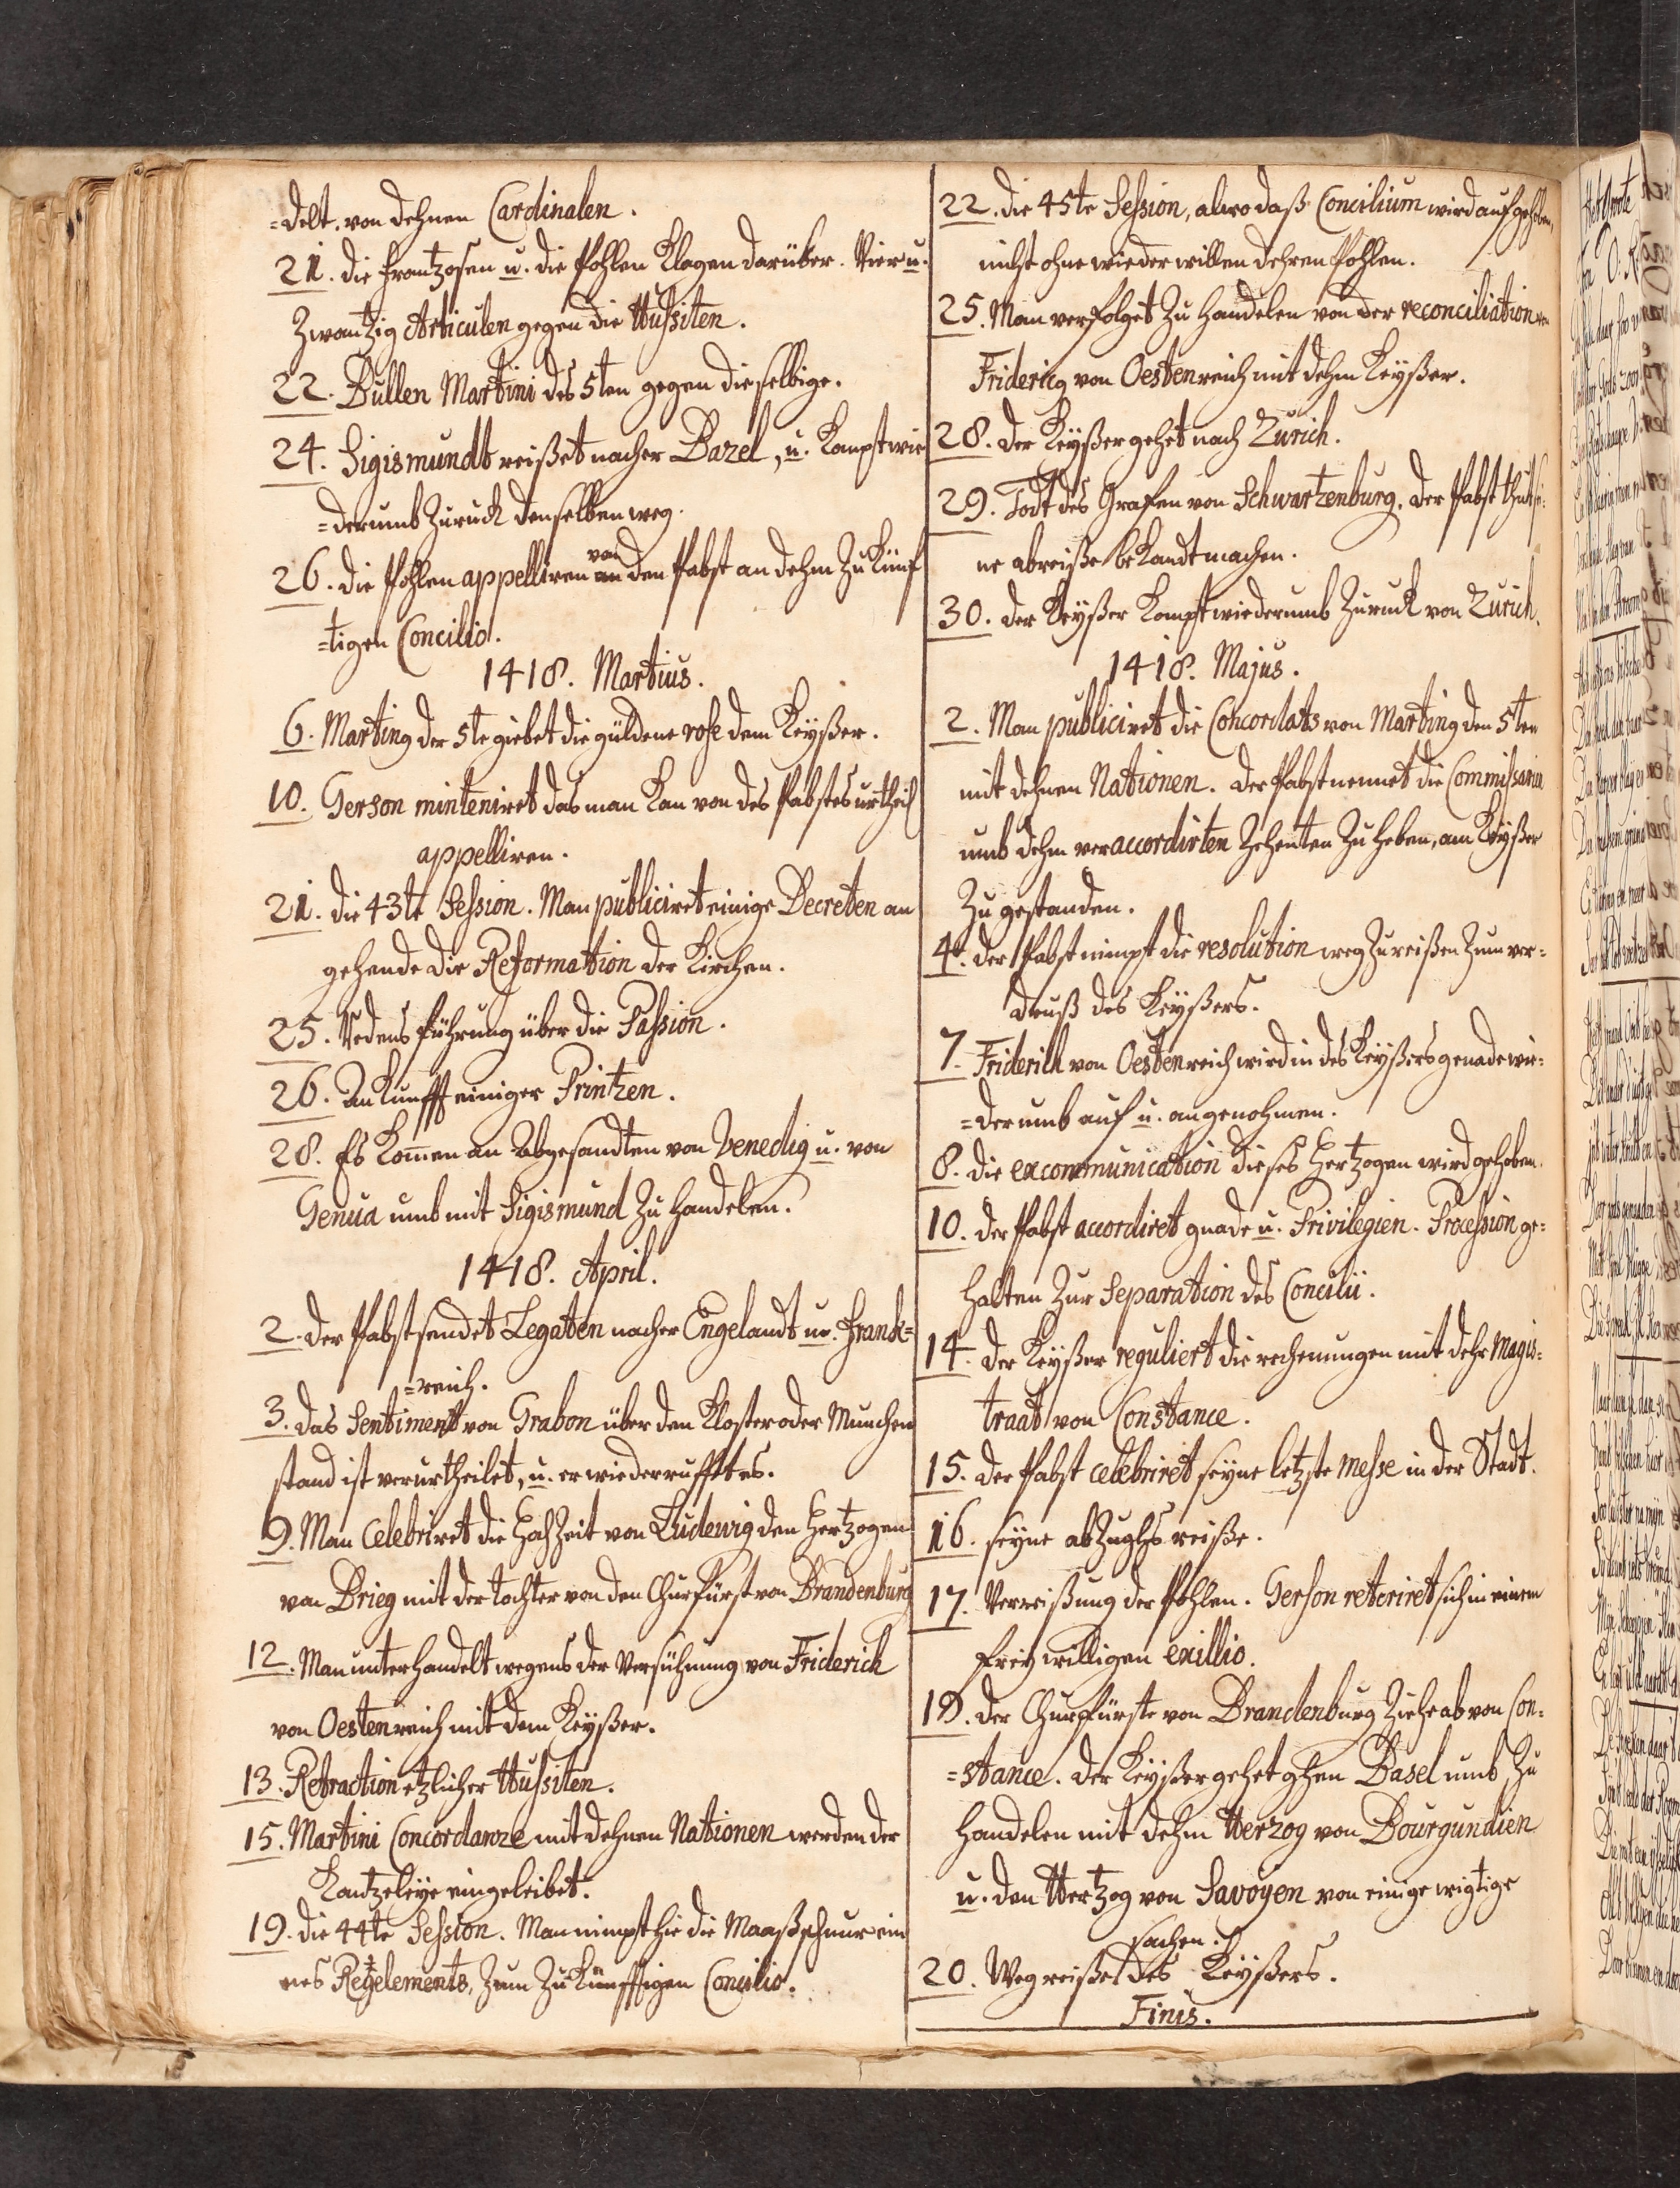 =delt. von dehnen Cardinalen.
21. die Frantzosen u. die Pohlen klagen darüber. Vier u.
Zwantzig Articulen gegen die Hussiten.
22. Bullen Martini des 5ten gegen dieselbige.
24. Sigismundt reißet nacher Bazel, u. kompt wie
=derumb Zuruck denselben weg.
26. die Pohlen appelliren von den Pabst an dehm Zu künf
=tigen Concilio.
1418. Martius.
6. Marting der 5te giebet die güldene rose dem Keyßer.
10. Gerson minteniret das man kan von des Pabstes urtheil
appelliren.
21. die 43te Session. Man publiciret einige Decreten an
gehende die Reformation der Kirchen.
25. Redens führung über die Passion.
26. Ankunfft einiger Printzen.
28. Es kom̄en an Abgesandten von Venedig u. von
Genua umb mit Sigismund Zu handelen.
1418. April.
2. der Pabst sendet Legaten nacher Engelandt u. Franck=
=reich.
3. das Sentiment von Grabon über den Kloster oder Munchen
stand ist verurtheilet, u. er wiederrufft es.
9. Man Celebriret die HochZeit von Ludewig den Hertzogen
von Brieg mit der tochter von den Churfürst von Brandenburg
12. Man unterhandelt wegens der Versühnung von Friderich
von Oestenreich mit dem Keyßer.
13. Retraction etzlicher Hussiten.
15. Martini Concordanze mit dehnen Nationen werden der
Kantzeleye eingeleibet.
19. die 44te Session. Man nimpt hie die Maaßschnur ein
nes Regelements, Zum Zukünfftigen Concilio.
22. die 45te Session, alwo daß Concilium wird aufgehoben,
nicht ohne wieder willen dehren Pohlen.
25. Man verfolget Zu handelen von der reconciliation von
Fridericg von Oestenreich mit dehm Keyßer.
28. der Keyßer gehet nach Zurich.
29. Todt des Grafen von Schwartzenburg. der Pabst thut sei-
ne abreiße bekandt machen.
30. der Keyßer kompt wiederumb Zuruck von Zurich.
1418. Majus.
2. Man publiciret die Concordats von Marting den 5ten
mit dehnen Nationen. der Pabst nennet die Commissarien
umb dehm veraccordirten Zehenten Zu heben, am Keyßer
Zu gestanden.
4. der Pabst nimpt die resolution weg Zu reißen Zum ver=
druß des Keyßers.
7. Friderich von Oestenreich wird in des Keyßers genade wie=
=derumb auf u. angenohmen.
8. die excommunication dieses Hertzogen wird gehoben.
10. der Pabst accordiret gnade u. Privilegien. Procession ge=
halten Zur Separation des Concilii.
14. der Keyßer reguliert die rechenungen mit dehr Magis=
traat von Constance.
15. der Pabst celebriret seyne letzste messe in der Stadt.
16. seyne abZughs reiße.
17. Verreißung der Pohlen. Gerson reteriret sich in einem
freywilligen exillio.
19. der Churfürste von Brandenburg Ziehe ab von Con=
=stance. der Keyßer gehet ghen Basel umb Zu
handelen mit dehm Herzog von Bourgundien
u. den Hertzog von Savoyen von einige wigtige
sachen.
20. Weg reiße des Keyßers.
Finis.